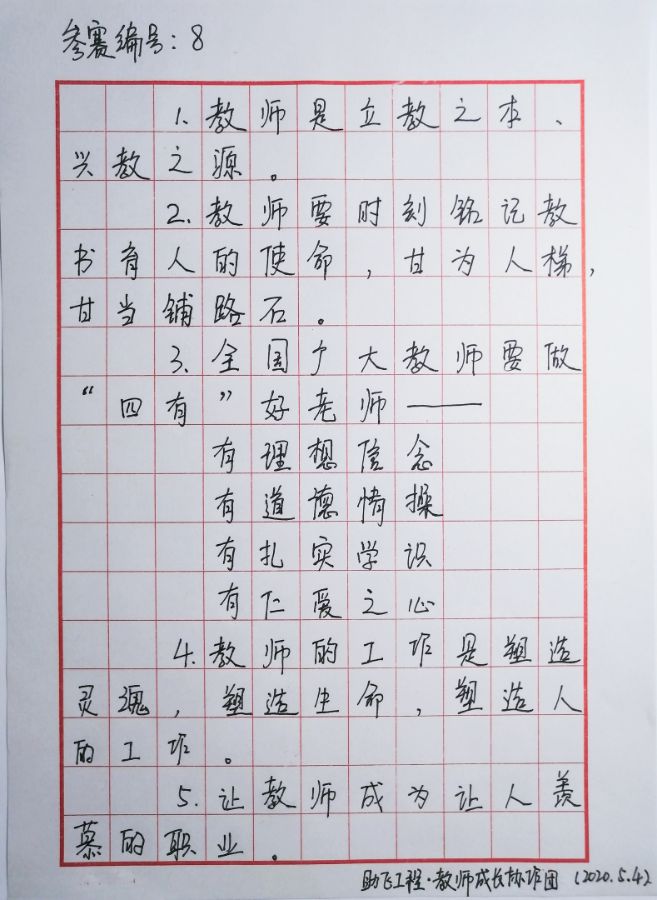 参赛编号:8
1.教师是立教之本、
兴教之源。
2.教师要时刻铭记教
书育人的使命,甘为人梯,
甘当铺路石。
3.全国广大教师要做
“四有”好老师——
有理想信念
有道德情操
有扎实学识
有仁爱之心
4.教师的工作是塑造
灵魂,塑造生命,塑造人
的工作。
5.让教师成为让人羡
慕的职业。
助飞工程·教师成长协作团 (2020.5.4)